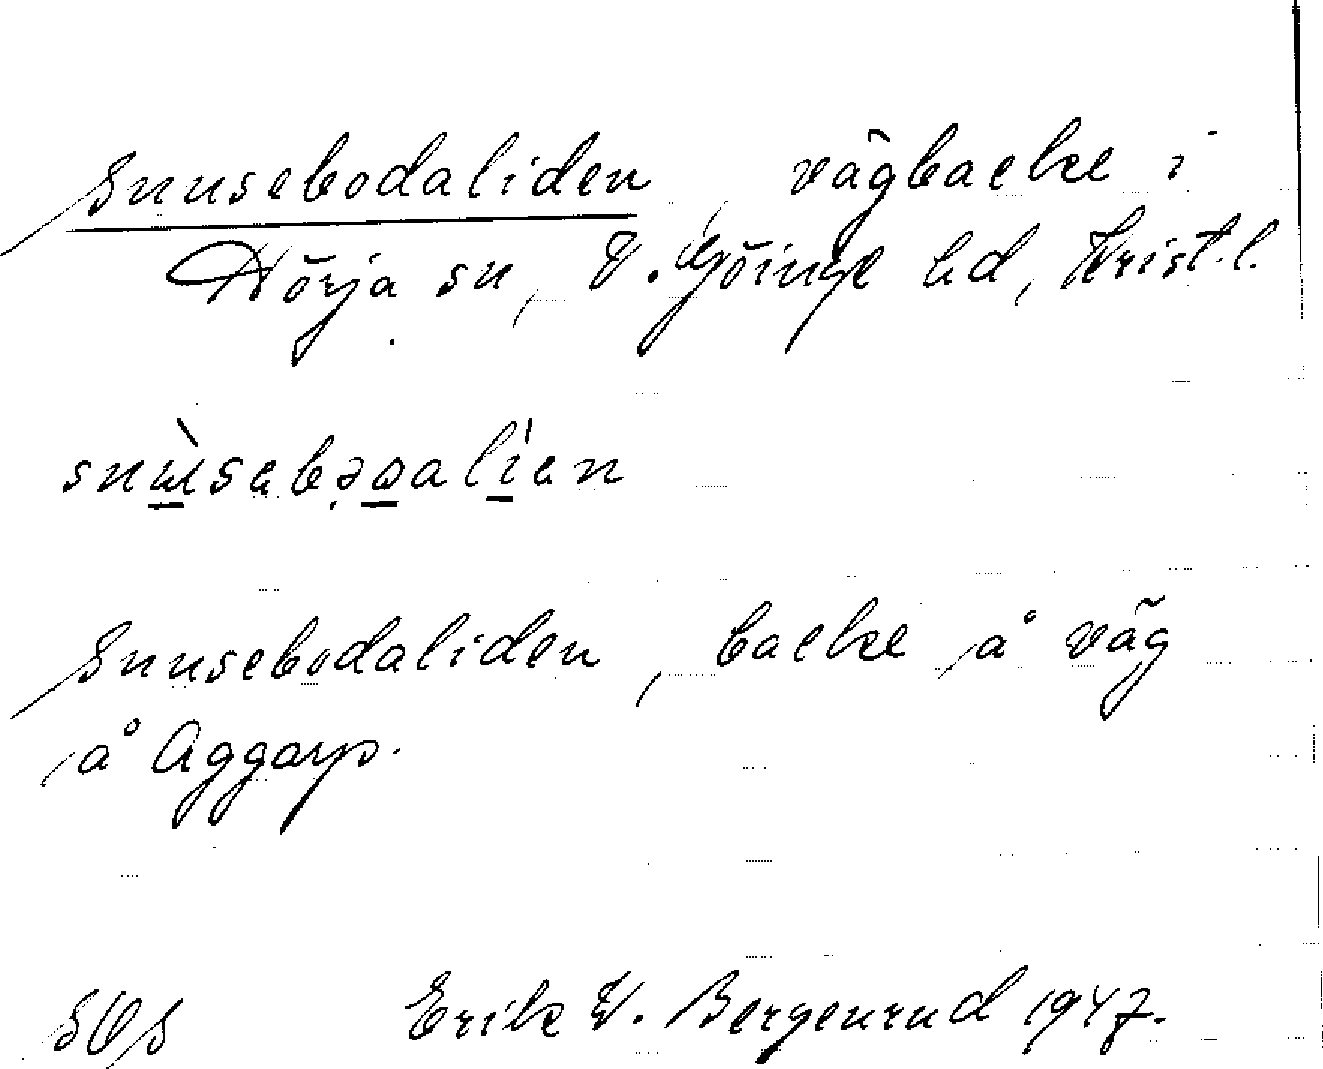 Snusebodaliden, vägbacke i
Hörja sn, V. Göinge hd, Krist. l.
Snusebodaliden, backe å väg
å Aggarp.
Erik W. Bergenrud 1947.